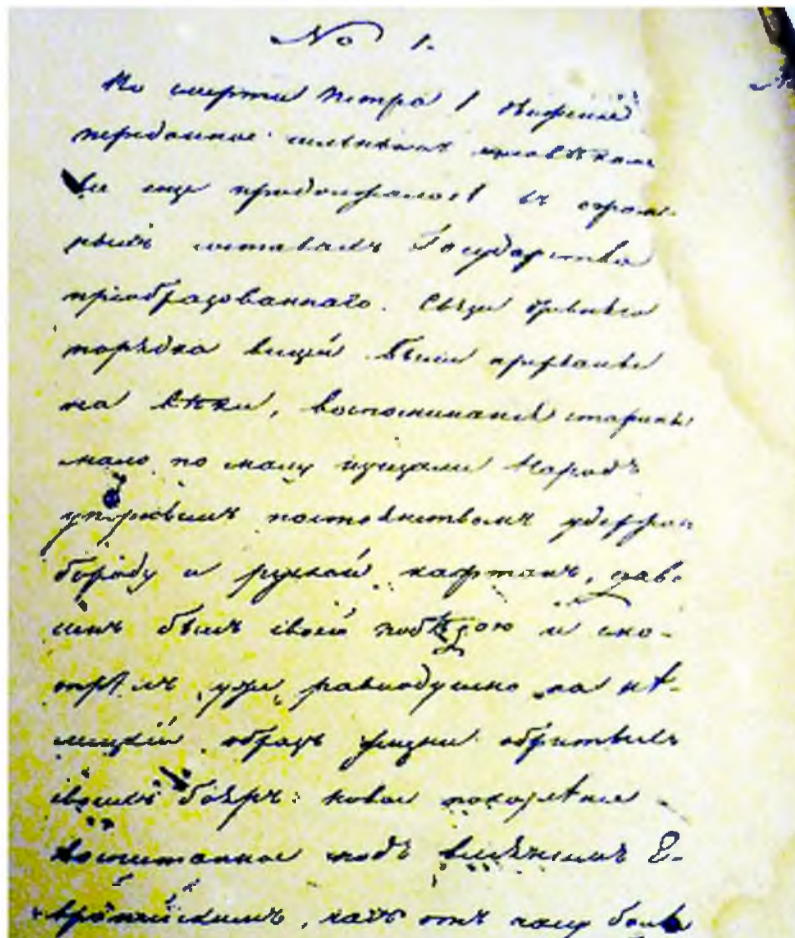 No 1.
По смерти Петра I движение
переданное сильнымъ человѣкомъ
все еще продолжалось въ огром-
ныхъ составахъ Государства
преобразованнаго. Связи древняго
порядка вещей были прерваны
на вѣки, воспоминанія старины
мало по малу изчезали Народъ
упорнымъ постоянствомъ удержавъ
бороду и рускій кафтанъ, дово-
ленъ былъ своей побѣдою и смо-
трѣлъ уже равнодушно на нѣ-
мецкій образъ жизни обритыхъ
своихъ бояръ: новое поколѣніе
воспитанное подъ вліяніемъ Е-
вропейскимъ, часъ отъ часу болѣе